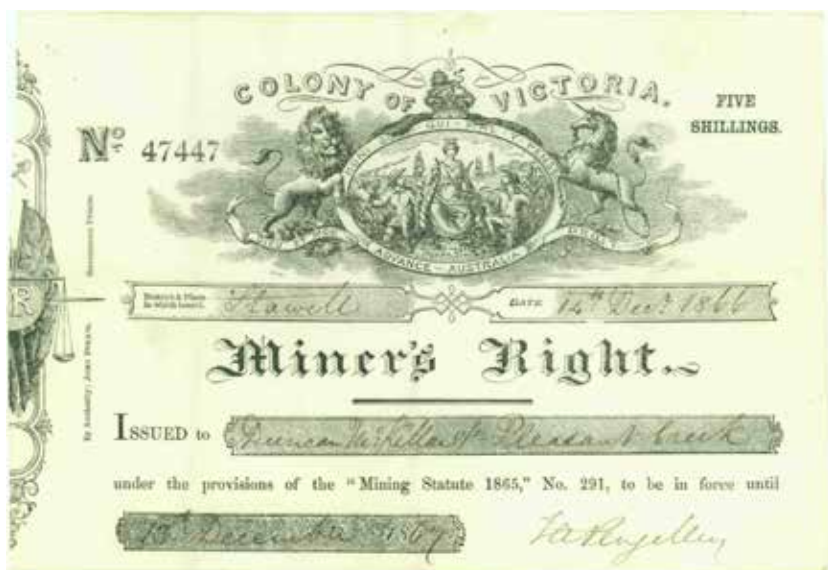 COLONY OF VICTORIA.
FIVE
SHILLINGS.
No 47447
ADVANCE AUSTRALIA
District & Place
in which issued.
Stawell
DATE 14th Decr 1866
Miner's Right.
ISSUED to Duncan McKellar Pleasant Creek
under the provisions of the "Mining Statute 1865," No. 291, to be in force until
13th December 1867
By Authority: JOHN FERRES,